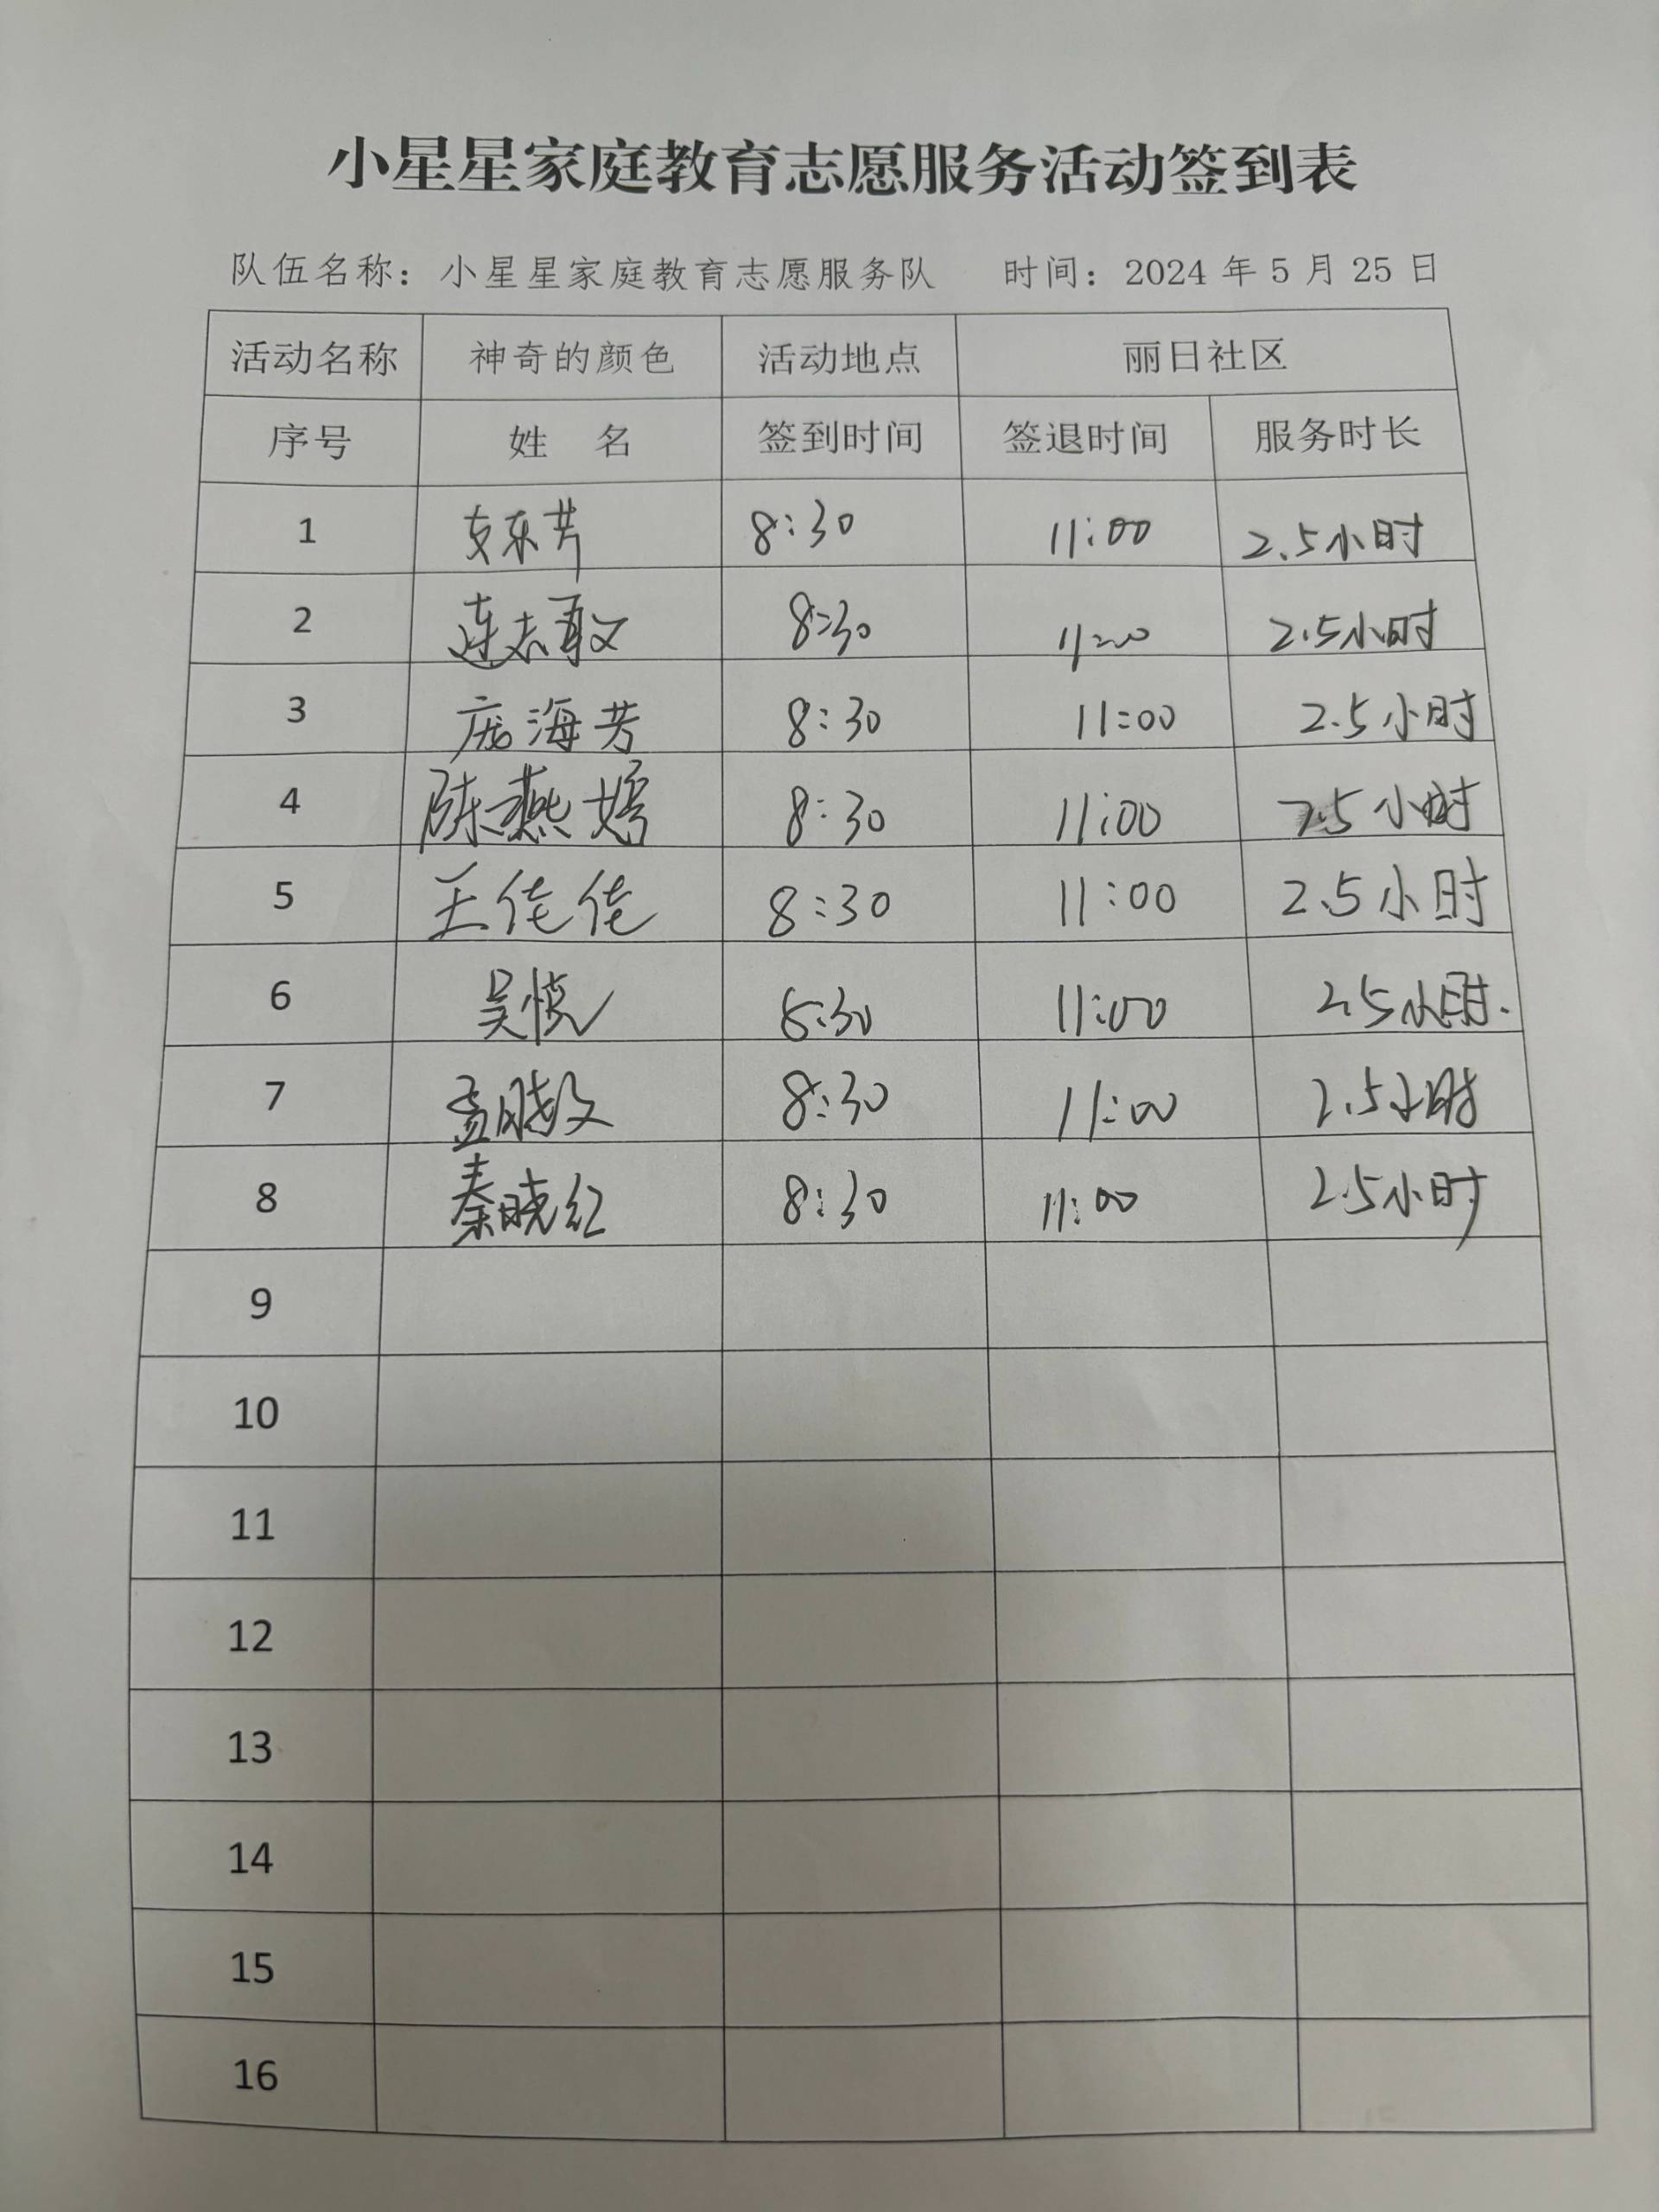 小星星家庭教育志愿服务活动签到表
队伍名称：小星星家庭教育志愿服务队 时间：2024 年 5 月 25 日
活动名称 神奇的颜色 活动地点 丽日社区
序号 姓 名 签到时间 签退时间 服务时长
1 8:30 11:00 2.5小时
2 连志敏 8:30 11:00 2.5小时
3 庞海芳 8:30 11:00 2.5小时
4 陈燕嫦 8:30 11:00 2.5小时
5 王佳佳 8:30 11:00 2.5小时
6 吴悦 8:30 11:00 2.5小时.
7 孟晓文 8:30 11:00 2.5小时
8 秦晓红 8:30 11:00 2.5小时
9
10
11
12
13
14
15
16